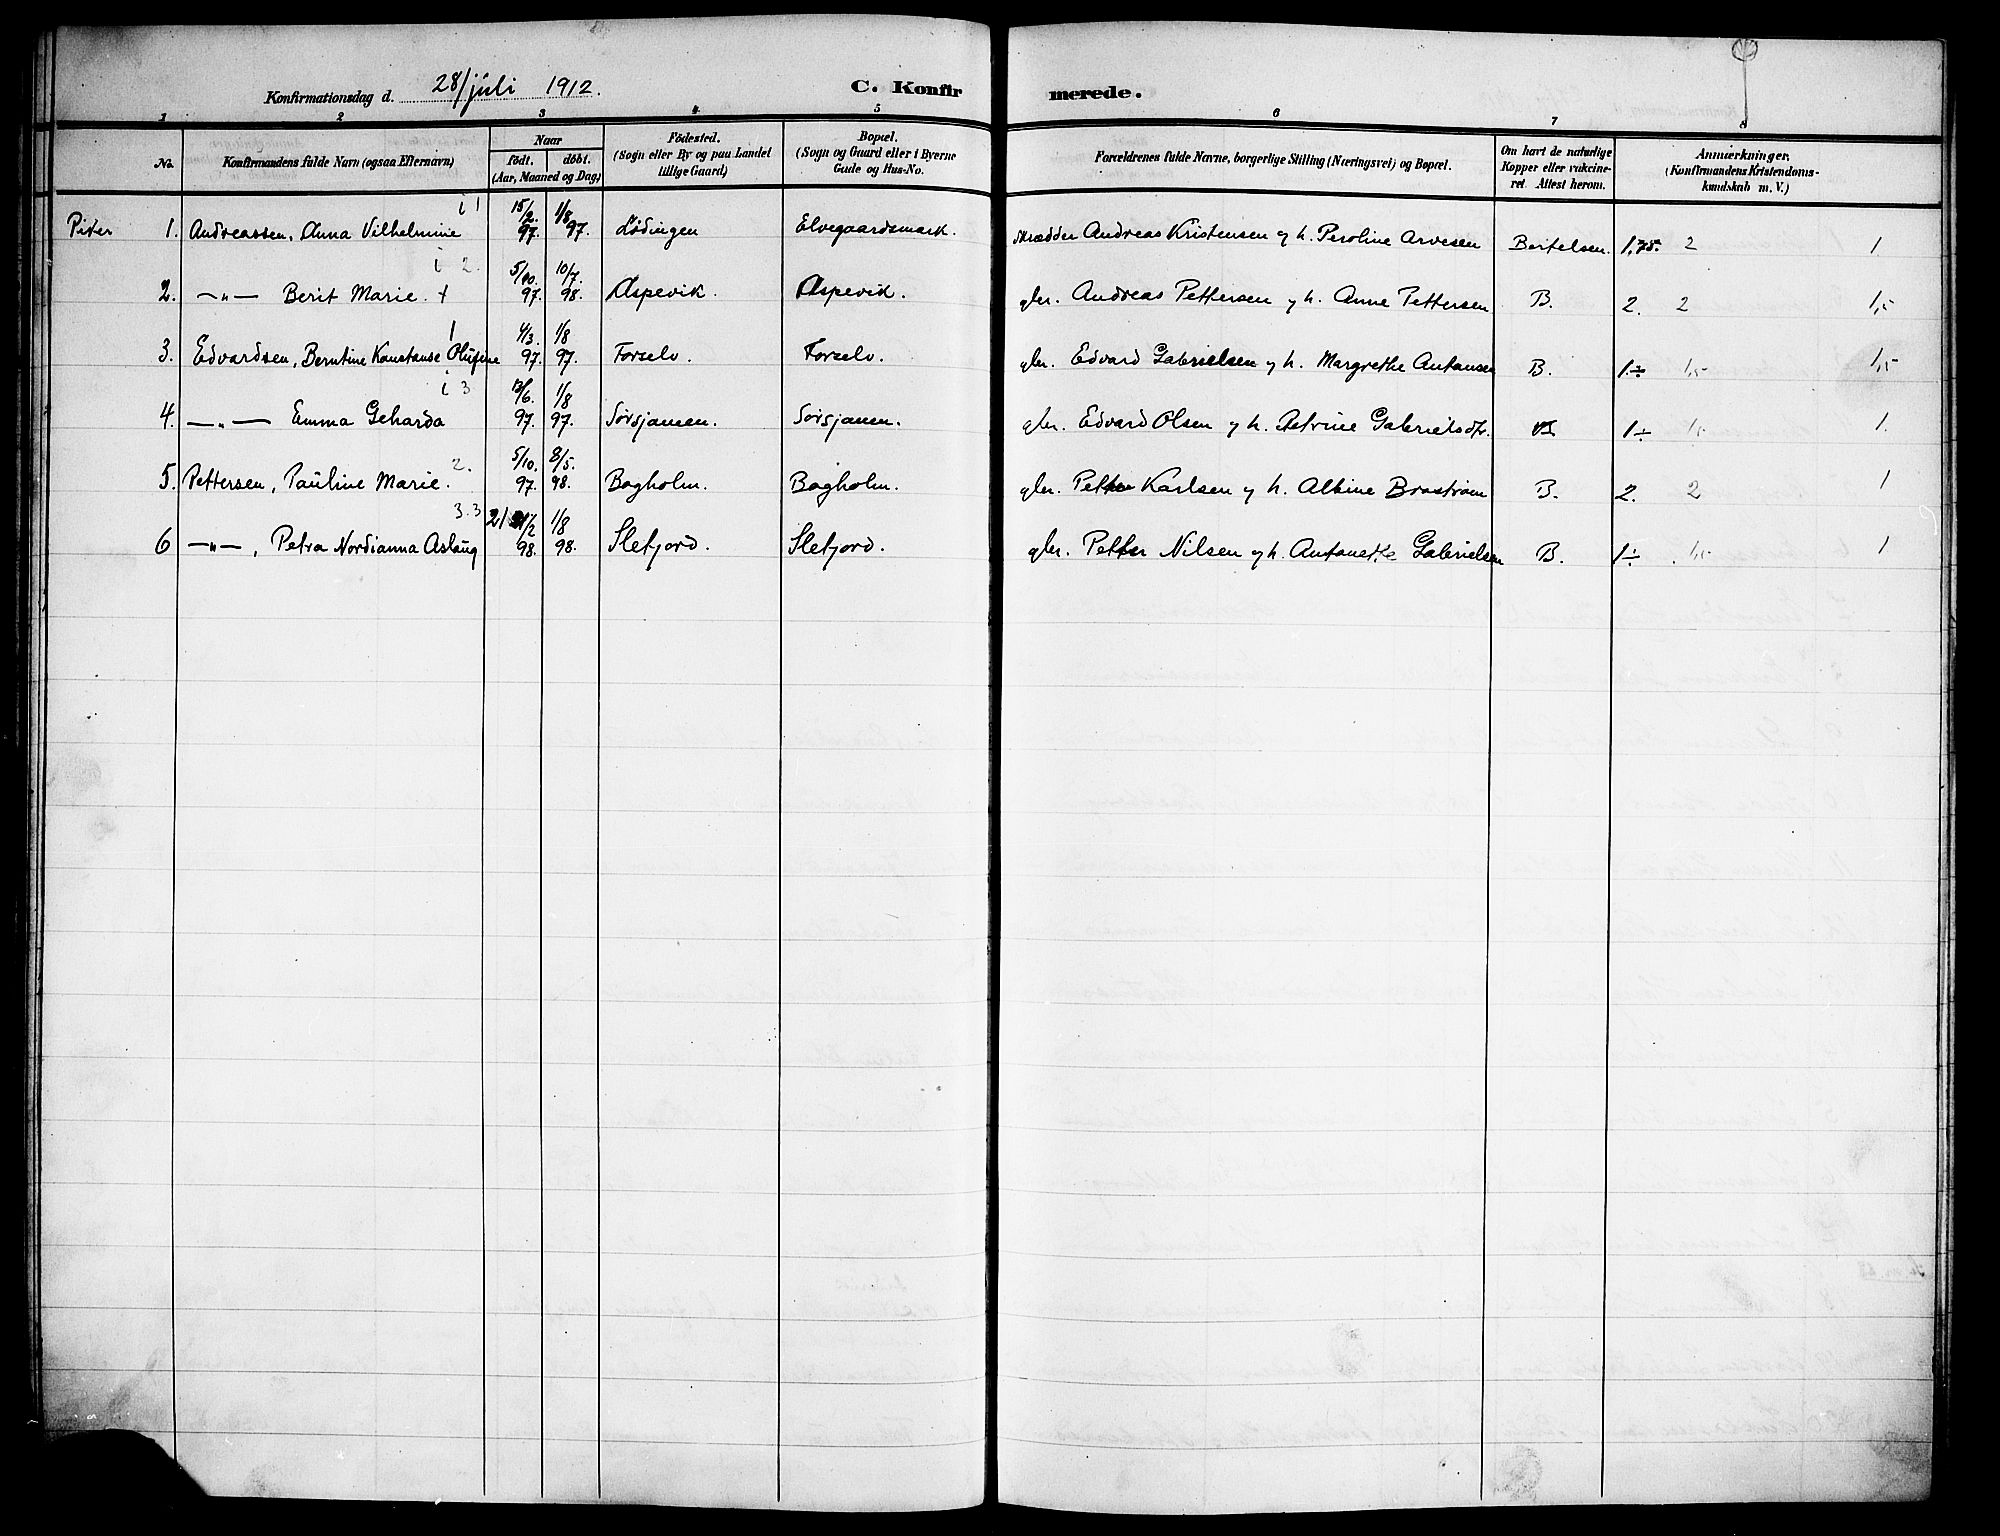 Konfirmationsdag d. 28/juli 1912. C. Konfir merede.
1 2 3 4 5 6 7 8
No. Konfirmandens fulde Navn (ogsaa Efternavn) Naar født. døbt. (Aar, Maaned og Dag) Fødested. (Sogn eller By og paa Landet tillige Gaard) Bopæl. (Sogn og Gaard eller i Byerne Gade og Hus-No. Forældrenes fulde Navne, borgerlige Stilling (Næringsvei) og Bopæl. Om havt de naturlige Kopper eller vakcineret. Attest herom. Anmærkninger. (Konfirmandens Kristendomskundskab m. V.)
Piker 1. Andreassen, Anna Vilhelmine i 1 15/2. 97. 1/8 97. Lødingen Elvegaardsmark. Skrædder Andreas Kristensen og h. Peroline Arvesen Bertelsen. 1,75. 2 1.
2. —"— Berit Marie. + i 2. 5/10. 97. 10/7. 98. Aspevik. Aspevik. gbr. Andreas Pettersen og h. Anne Pettersen B. 2. 2 1,5
3. Edvardsen, Berntine Konstanse Olufine 1 4/3 97. 1/8 97. Forselv. Forselv. gbr. Edvard Gabrielsen og h. Margrethe Antonsen B. 1÷ 1,5 1,5
4. —"— Emma Geharda i 3 97. 1/8 97. Sørsjonen. Sørsjonen. gbr. Edvard Olsen og h. Gabrielsdtr. 1÷ 1,5 1.
5. Pettersen, Pauline Marie. 2. 5/10. 97. 8/5. 98. Bogholm. Bogholm. gbr. Petter Karlsen og h. Albine Brostrøm B. 2. 2 1
6 —"—, Petra Nordianna Aslaug 3.3 21/2 98. 1/8 98. Sletjord. Sletjord. gbr. Petter Nilsen og h. Antonette Gabrielsen B. 1÷ 1,5 1